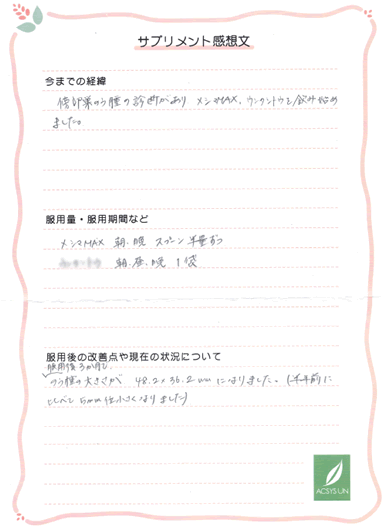 サプリメント感想文
今までの経緯
傍卵巣のう腫の診断があり メシマMAX、ウンカントウを飲み始め
ました。
服用量・服用期間など
メシマMAX 朝・晩 スプーン半量ずつ
朝・昼・晩 1袋
服用後の改善点や現在の状況について
服用後3か月で
のう腫の大きさが 48.2×36.2mmになりました。(半年前に
比べて5mm位小さくなりました)
ACSYS UN